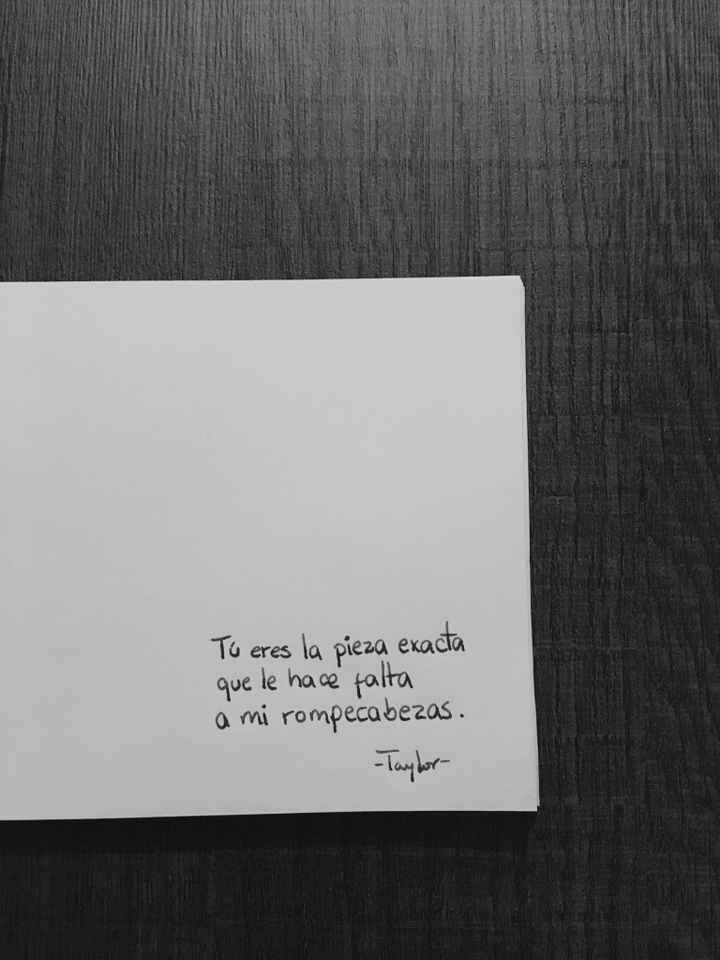 Tú eres la pieza exacta
que le hace falta
a mi rompecabezas.
-Taylor-